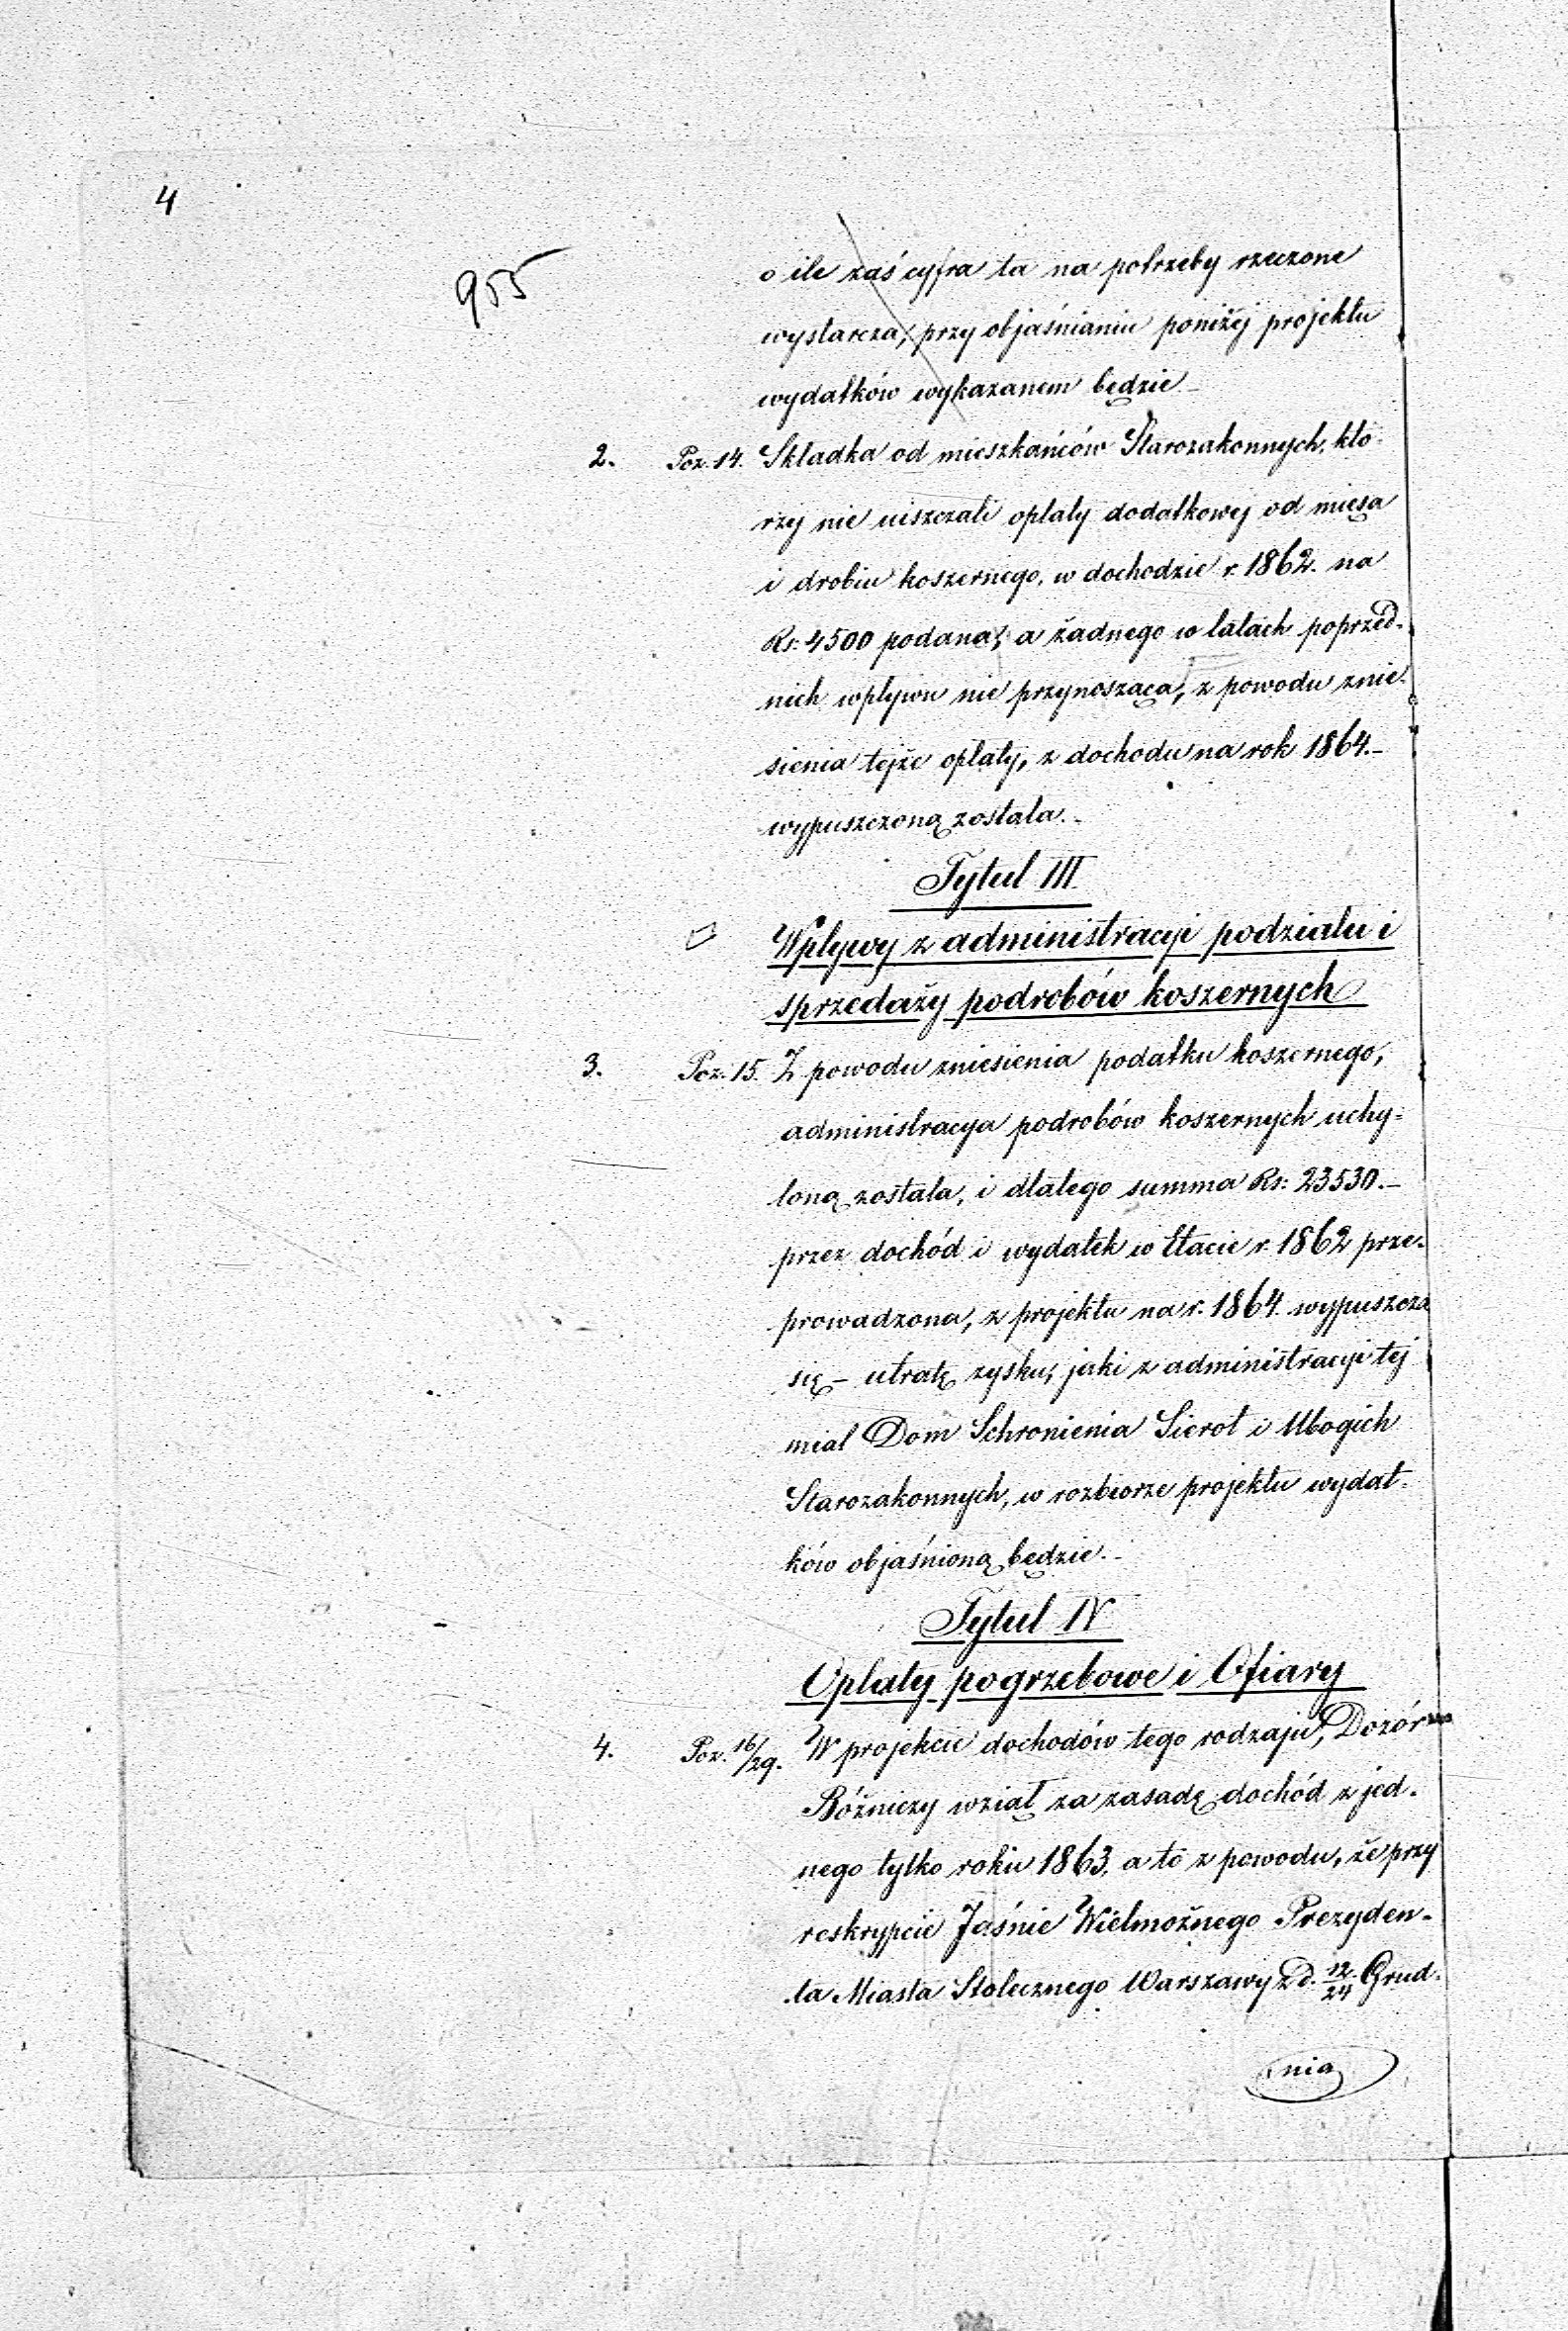 4
955
o ile zaś cyfra ta na potrzeby rzeczone
wystarcza, przy objaśnianiu poniżej projektu
wydatków wykazanem będzie –
2. Poz. 14. Składka od mieszkańców Starozakonnych, któ-
rzy nie uiszczali opłaty dodatkowej od mięsa
i drobiu koszernego, w dochodzie r. 1862. na
Rs: 4500 podana, a żadnego w latach poprzed-
nich wpływu nie przynosząca, z powodu znie-
sienia tejże opłaty, z dochodu na rok 1864.–
wypuszczoną została.–
Tytuł III
Wpływy z administracyi podziału i
sprzedaży podrobów koszernych
3. Poz. 15. Z powodu zniesienia podatku koszernego,
administracya podrobów koszernych uchy-
loną została, i dlatego summa Rs: 23530.–
przez dochód i wydatek w Etacie r. 1862 prze-
prowadzona, z projektu na r. 1864. wypuszcza
się – utratę zysku, jaki z administracyi tej
miał Dom Schronienia Sierot i Ubogich
Starozakonnych, w rozbiorze projektu wydat-
ków objaśnioną będzie.–
Tytuł IV
Opłaty pogrzebowe i Ofiary
4. Poz. 16/29. W projekcie dochodów tego rodzaju, Dozór
Bóżniczy wziął za zasadę dochód z jed-
nego tylko roku 1863, a to z powodu, że przy
reskrypcie Jaśnie Wielmożnego Prezyden-
ta Miasta Stołecznego Warszawy z d. 12/24 Grud-
nia